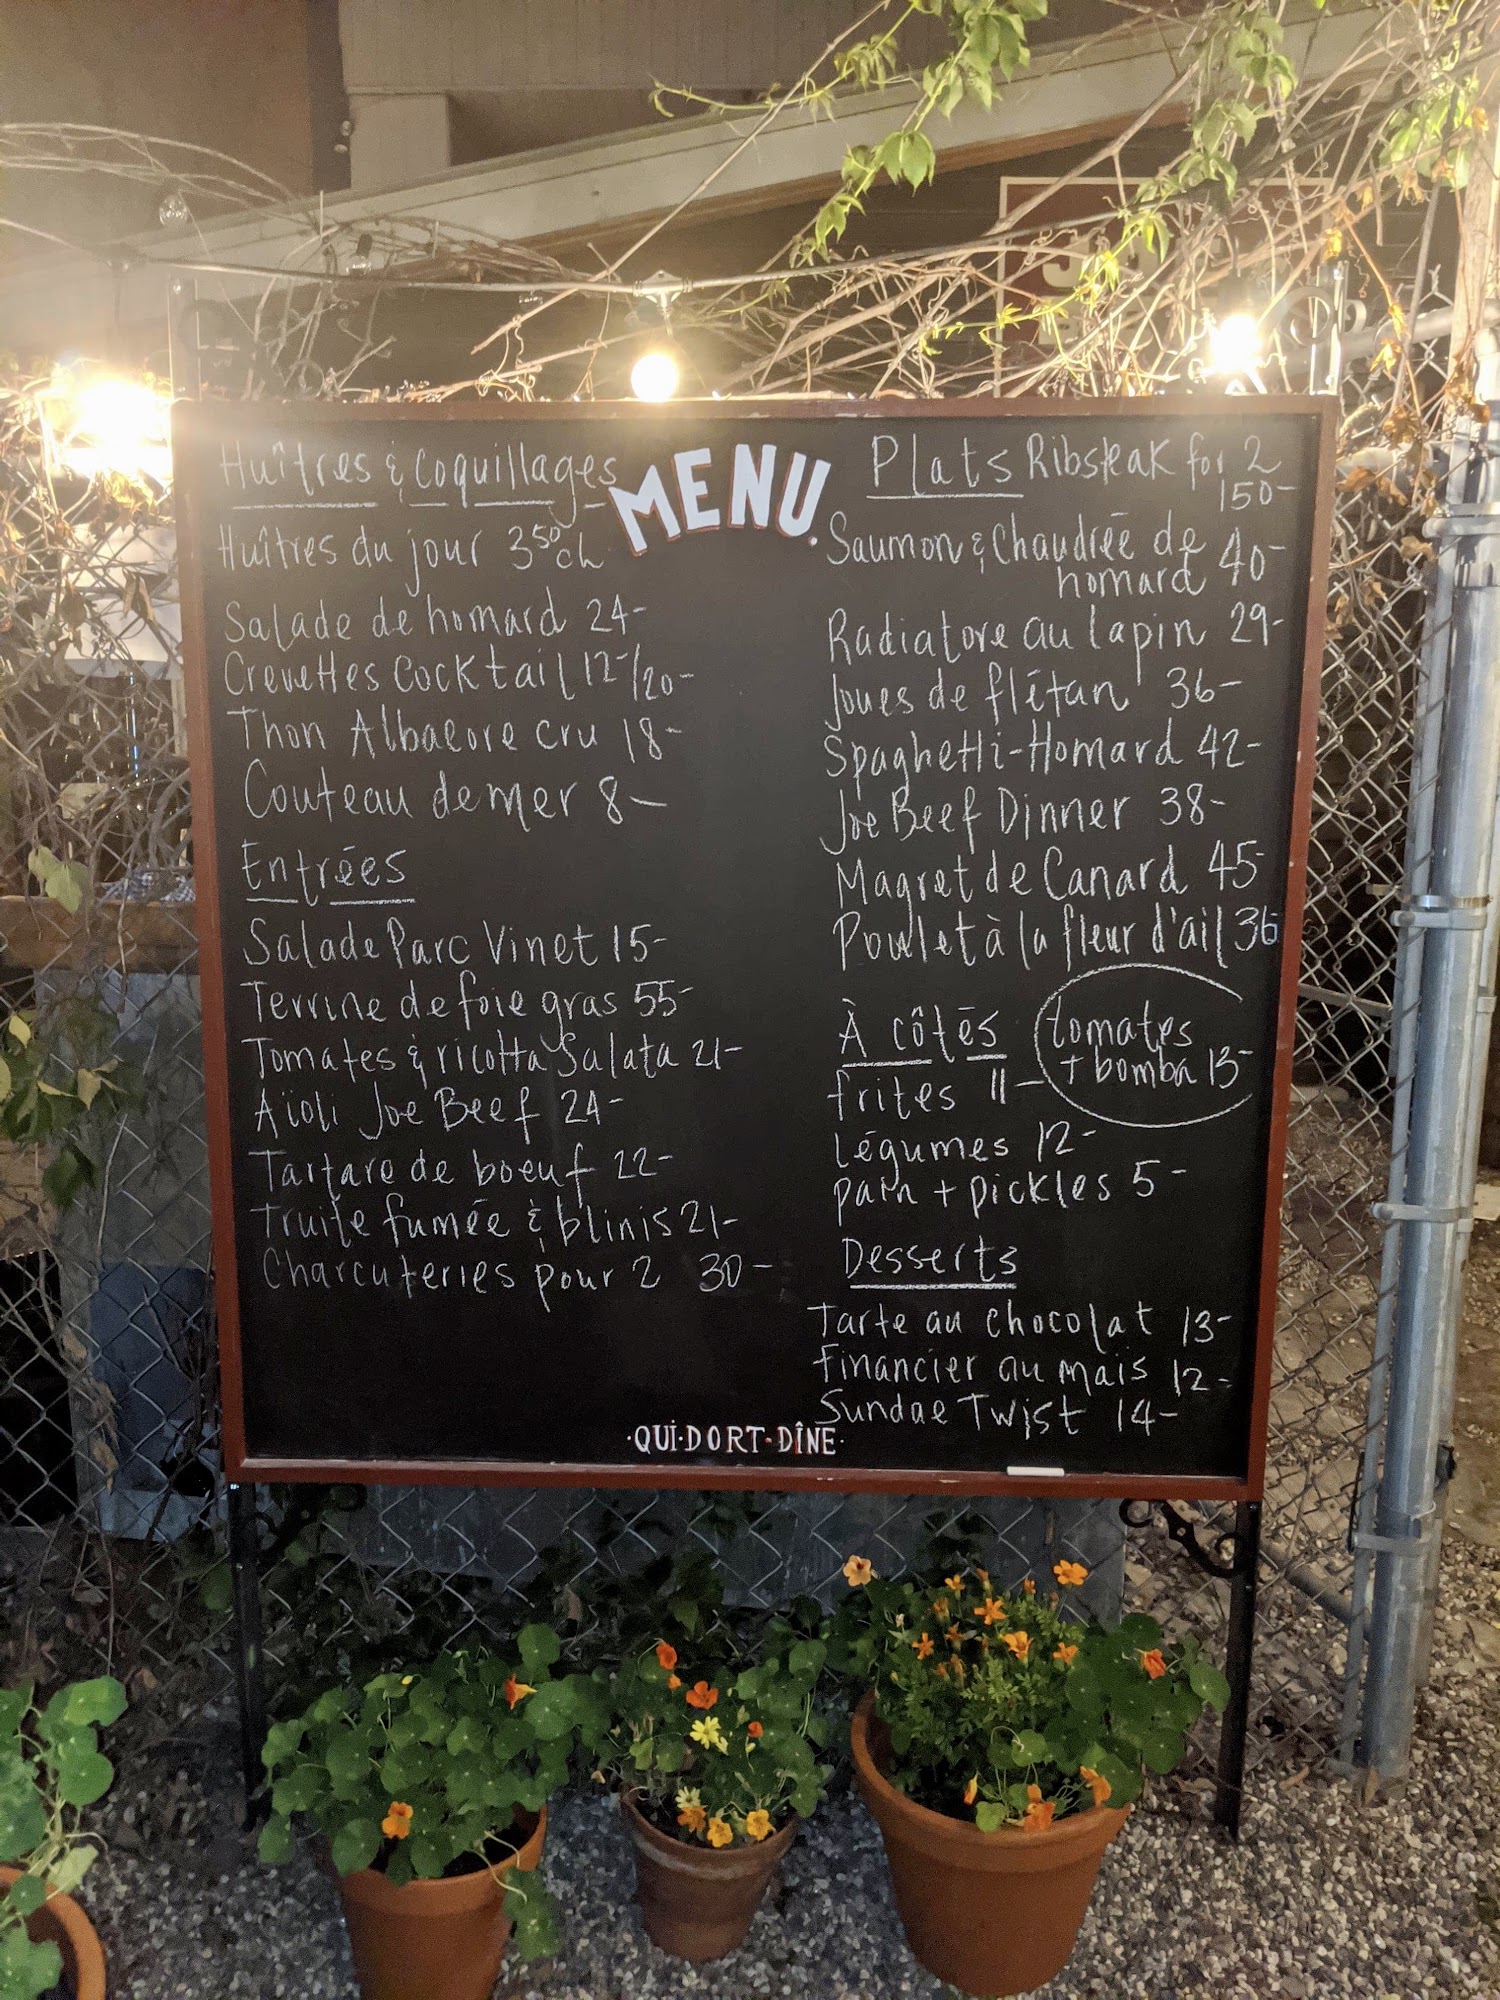 Huîtres & Coquillages
Huîtres du jour 3⁵⁰ ch
Salade de homard 24-
Crevettes Cocktail 12-/20-
Thon Albacore cru 18-
Couteau de mer 8-
Entrées
Salade Parc Vinet 15-
Terrine de foie gras 55-
Tomates & ricotta Salata 21-
Aïoli Joe Beef 24-
Tartare de boeuf 22-
Truite fumée & blinis 21-
Charcuteries pour 2 30-
MENU.
Plats Ribsteak for 2
150-
Saumon & Chaudrée de
homard 40-
Radiatore au lapin 29-
Joues de flétan 36-
Spaghetti-Homard 42-
Joe Beef Dinner 38-
Magret de Canard 45-
Poulet à la fleur d'ail 36
À côtés
tomates
+ bomba 13-
frites 11-
légumes 12-
pain + pickles 5-
Desserts
Tarte au chocolat 13-
financier au maïs 12-
Sundae Twist 14-
·QUI·DORT·DÎNE·